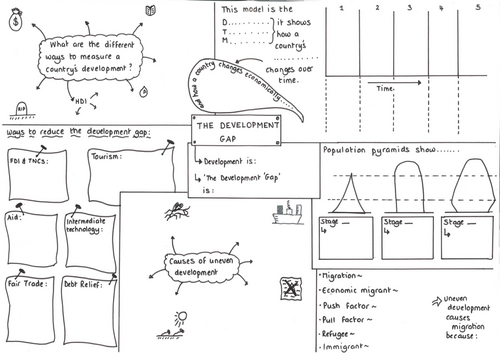 What are the different
ways to measure a
country's development?
HDI
RIP
$
This model is the
D........
T......
M......
it shows
how a
country's
..............
changes over
time.
and how a country changes economically....
1 2 3 4 5
Time.
THE DEVELOPMENT
GAP
↳ Development is:
↳ 'The Development 'Gap'
is:
Ways to reduce the development gap:
FDI & TNCs:
Tourism:
Aid:
Intermediate
technology:
Fair Trade:
Debt Relief:
Causes of uneven
development
Population pyramids show.......
Stage __
Stage __
Stage __
• Migration~
• Economic migrant~
• Push factor~
• Pull factor~
• Refugee~
• Immigrant~
⇒ Uneven
development
causes
migration
because: